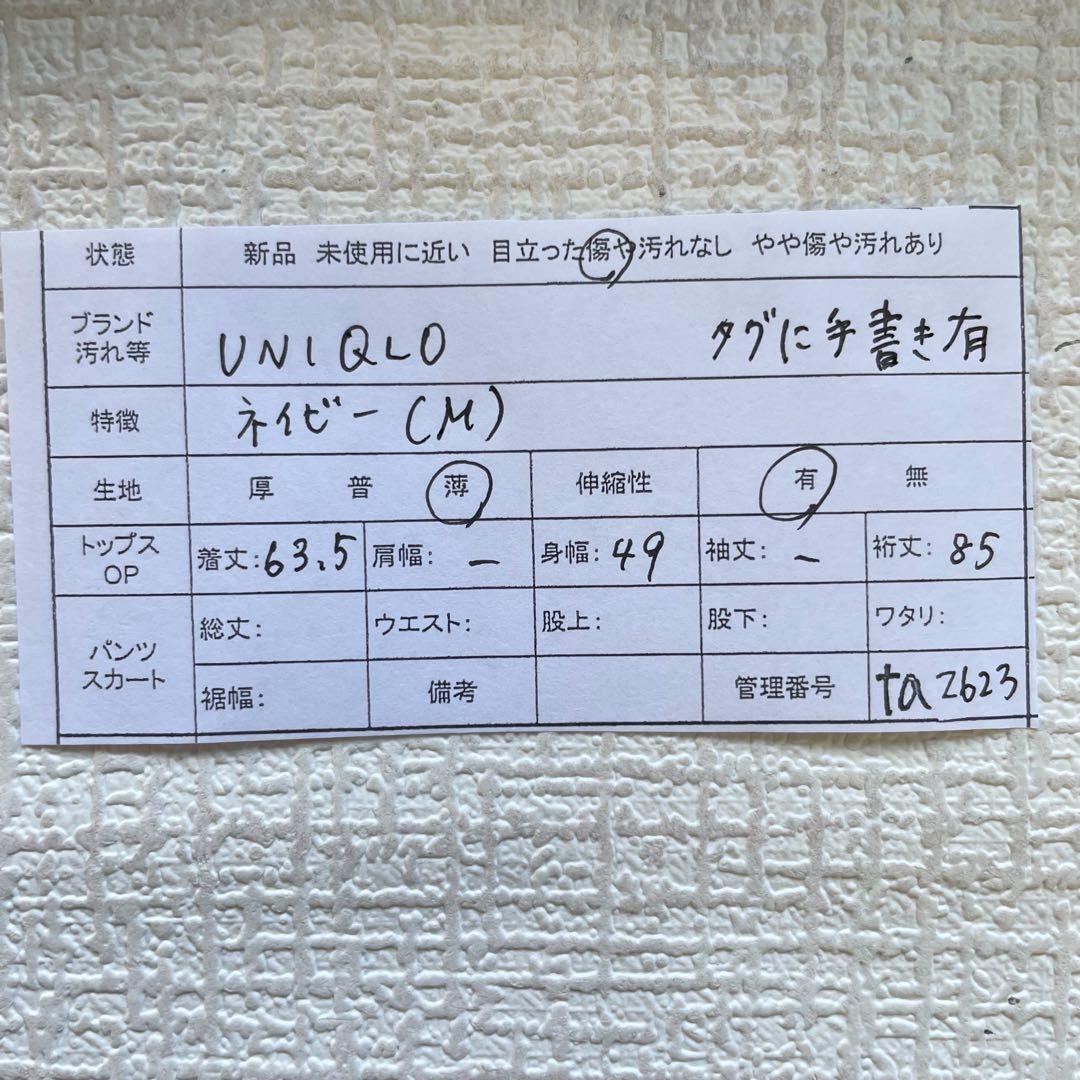 状態 新品 未使用に近い 目立った傷や汚れなし やや傷や汚れあり
ブランド
汚れ等
UNIQLO タグに手書き有
特徴 ネイビー (M)
生地 厚 普 薄 伸縮性 有 無
トップス
OP
着丈:63.5 肩幅: – 身幅:49 袖丈: – 裄丈:85
パンツ
スカート
総丈: ウエスト: 股上: 股下: ワタリ:
裾幅: 備考 管理番号 ta2623